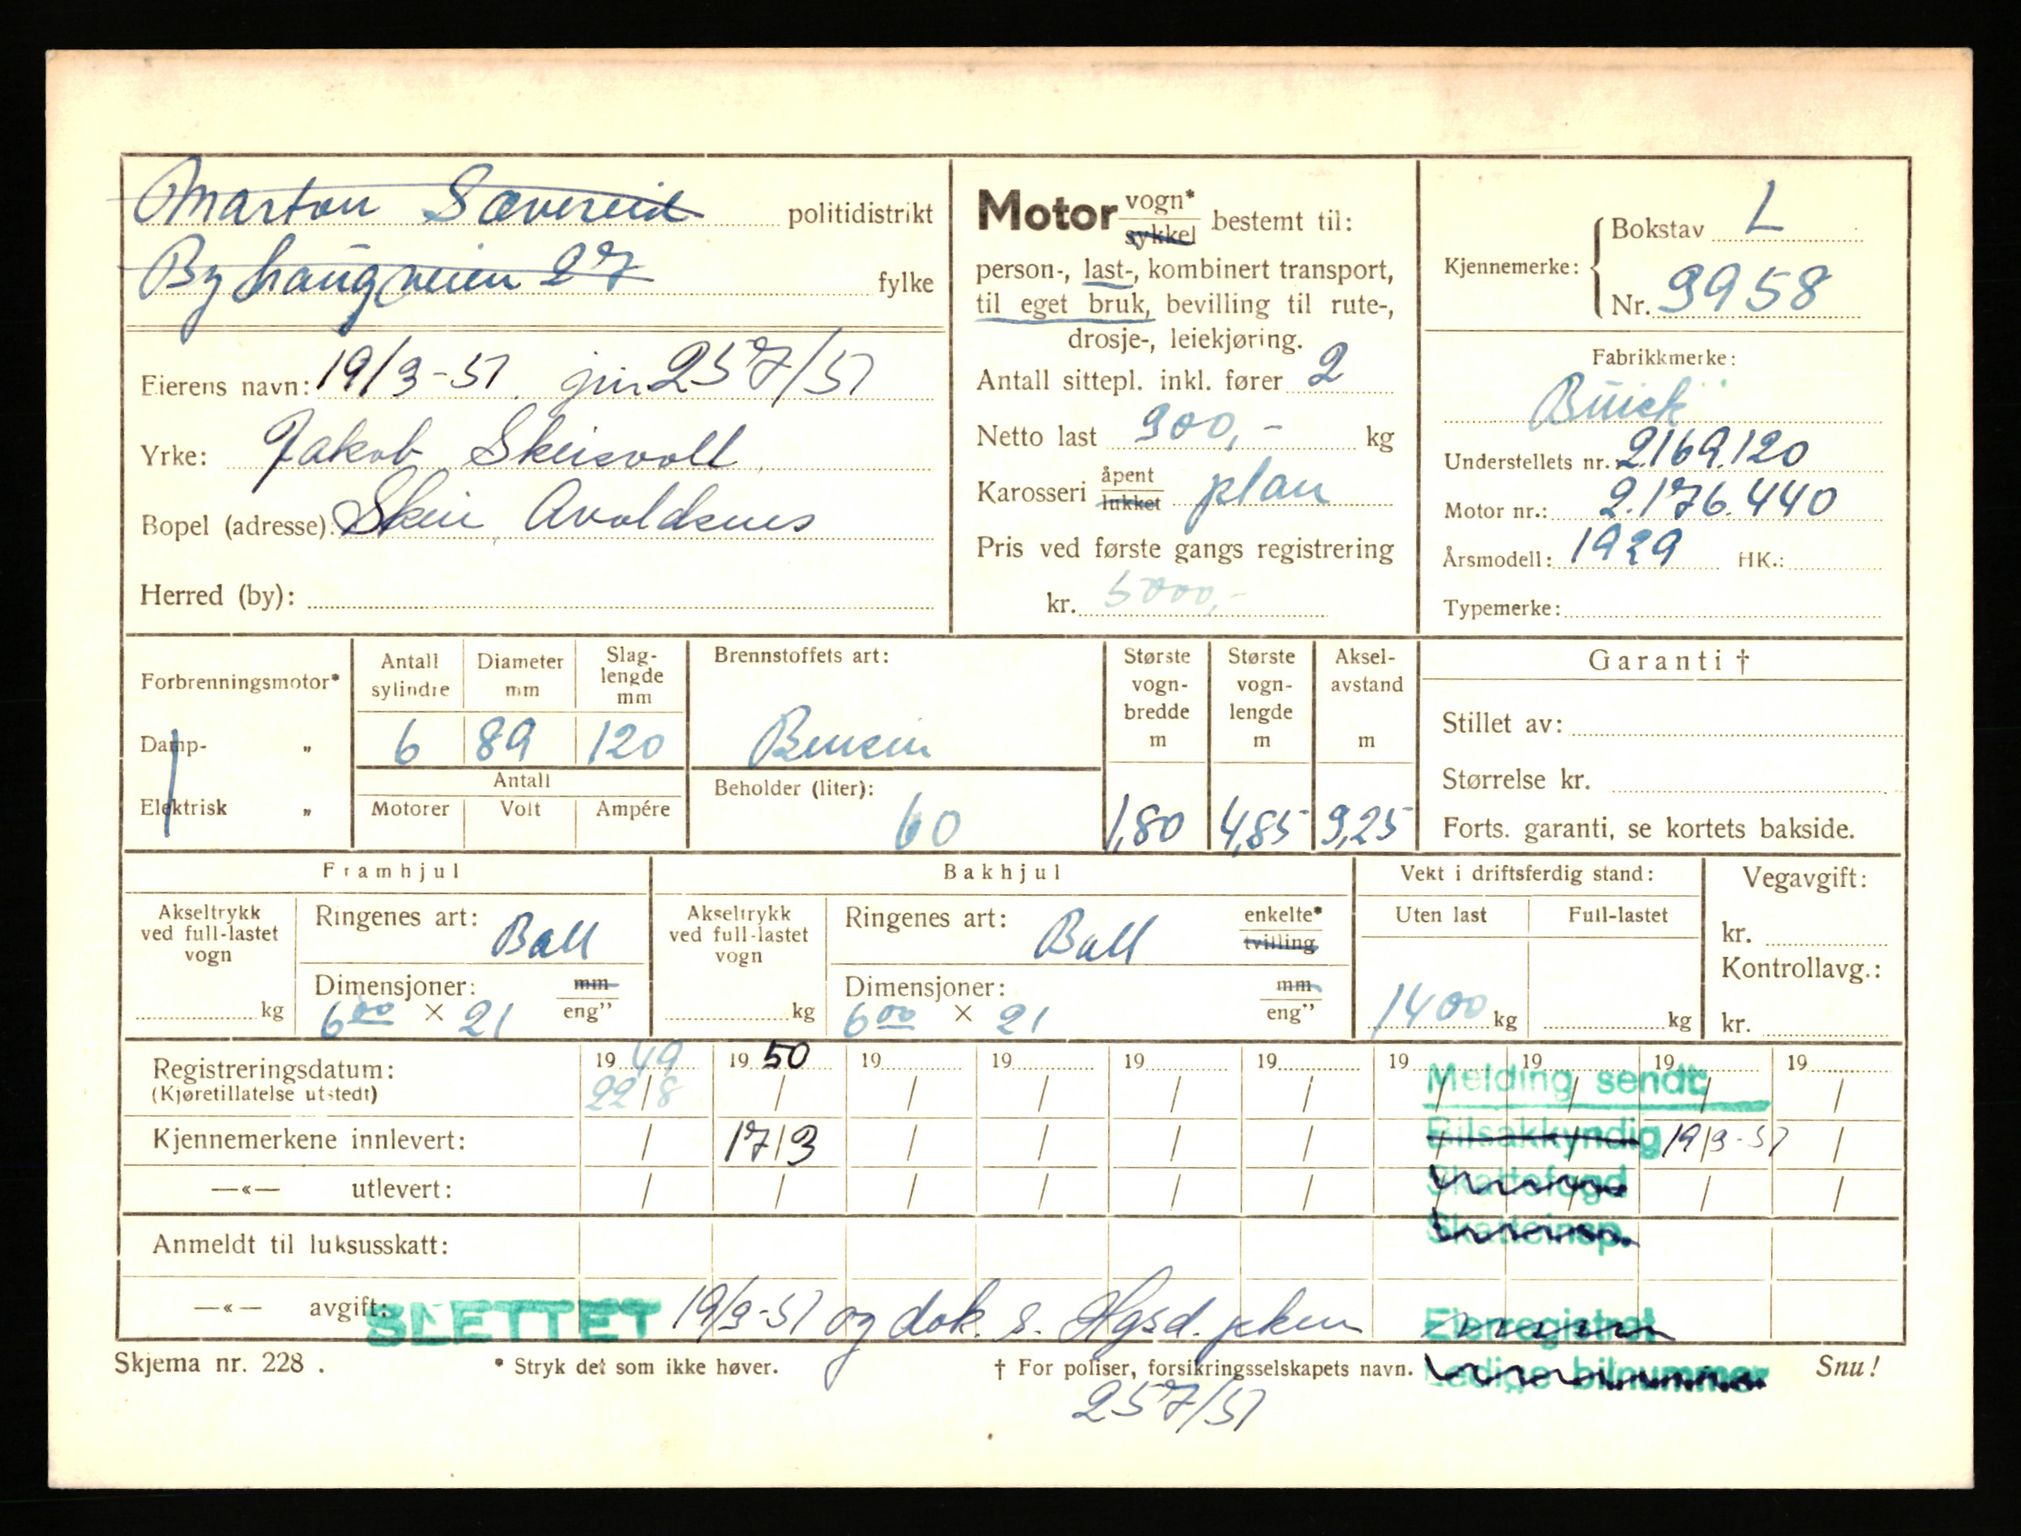 Marton Sævereid politidistrikt
Byhaugveien 27 fylke
Eierens navn: 19/3-51 257/51
Yrke: Jakob Skeisvoll
Bopel (adresse): Skeie Avaldsnes
Herred (by):
Motor vogn* sykkel bestemt til:
person-, last-, kombinert transport,
til eget bruk, bevilling til rute-,
drosje-, leiekjøring.
Antall sittepl. inkl. fører 2
Netto last 900,- kg
Karosseri åpent lukket plan
Pris ved første gangs registrering
kr. 5000,-
Kjennemerke: Bokstav L
Nr. 9958
Fabrikkmerke:
Buick
Understellets nr. 2169.120
Motor nr.: 2.176.440
Årsmodell: 1929 HK.:
Typemerke:
Forbrenningsmotor*
Damp- "
Elektrisk "
Antall sylindre Diameter mm Slag-lengde mm
6 89 120
Antall
Motorer Volt Ampére
Brennstoffets art:
Bensin
Beholder (liter):
60
Største vogn-bredde m
1,80
Største vogn-lengde m
4,85
Aksel-avstand m
3,25
Garanti †
Stillet av:
Størrelse kr.
Forts. garanti, se kortets bakside.
Framhjul
Akseltrykk ved full-lastet vogn
kg
Ringenes art: Ball
Dimensjoner: mm eng"
6 00 × 21
Bakhjul
Akseltrykk ved full-lastet vogn
kg
Ringenes art: Ball enkelte* tvilling
Dimensjoner: mm eng"
6 00 × 21
Vekt i driftsferdig stand:
Uten last Full-lastet
1400 kg kg
Vegavgift:
kr.
Kontrollavg.:
kr.
Registreringsdatum: 19 49 19 50 19 19 19 19 19 19 19 19
(Kjøretillatelse utstedt) 22/8 / / / / / / / / /
Melding sendt:
Kjennemerkene innlevert: / 17/3 / / / / / / /
Bilsakkyndig 19/3-51
—«— utlevert: / / / / / / / / / /
Skattefogd
Skatteinsp.
Anmeldt til luksusskatt:
—«— avgift:
SLETTET 19/3-51 og dok. s. Hgsd. pkm
Eierregistret
Ledige bilnummer
Skjema nr. 228. * Stryk det som ikke høver. † For poliser, forsikringsselskapets navn. Snu!
257/51